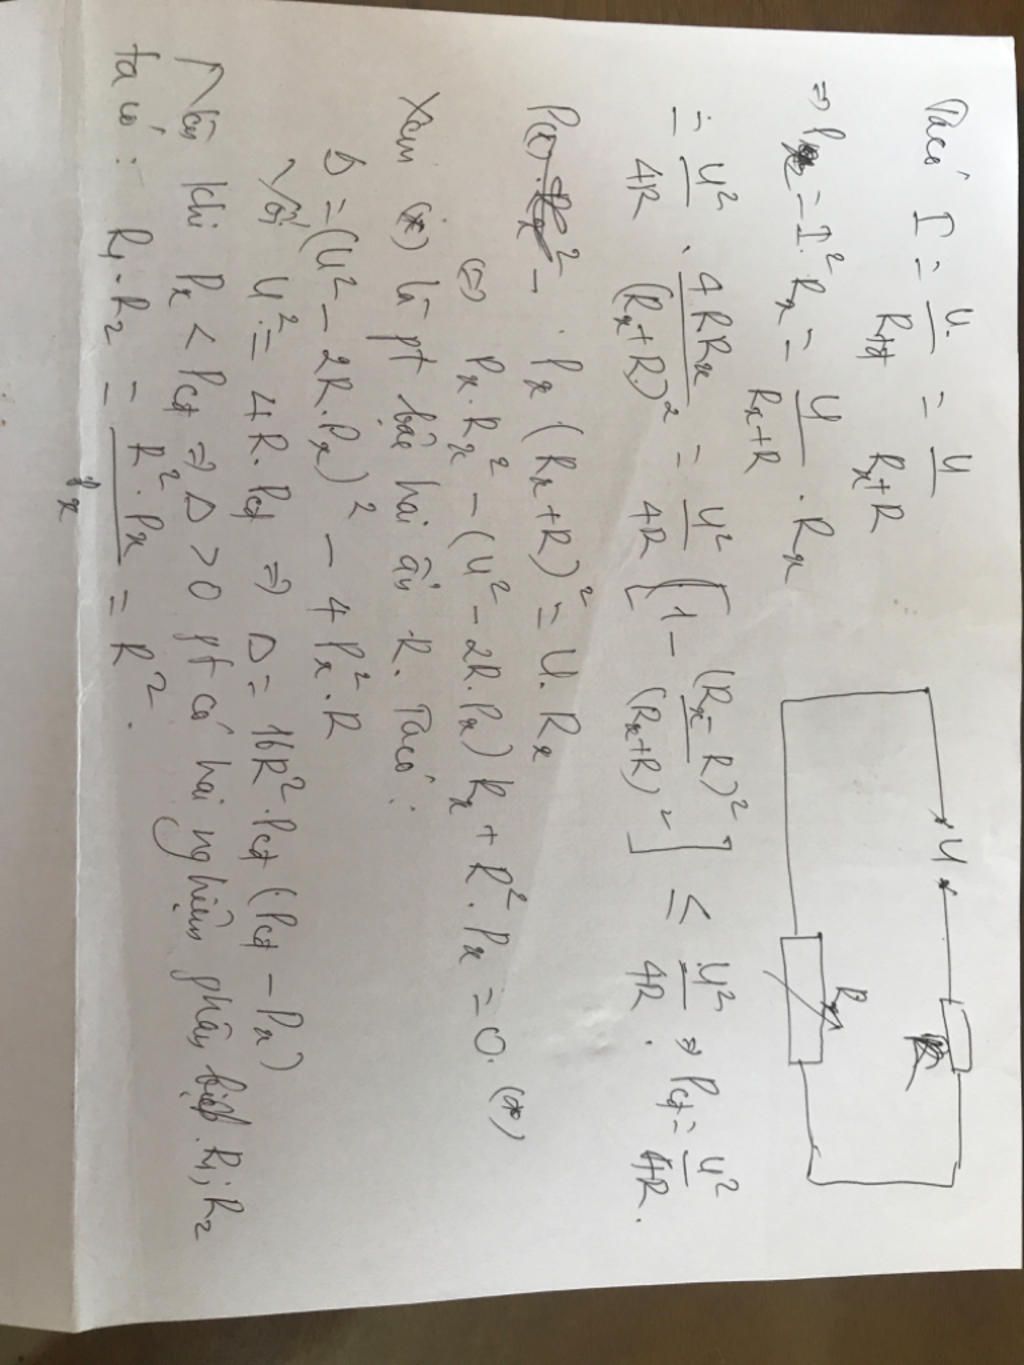 Ta có I = U/Rtđ = U/(Rx+R)
⇒ Px = I². Rx = U/(Rx+R) . Rx
= U²/4R . 4RRx/(Rx+R)² = U²/4R [1 - (Rx-R)²/(Rx+R)²] ≤ U²/4R ⇒ Pcđ = U²/4R.
Px (Rx+R)² = U. Rx
⇔ Px. Rx² - (U² - 2R. Px) Rx + R². Px = 0. (*)
Xem (*) là pt bậc hai ẩn R. Ta có:
Δ = (U² - 2R. Px)² - 4 Px². R
Với U² = 4R. Pcđ ⇒ Δ = 16R². Pcđ (Pcđ - Px)
Nên khi Px < Pcđ ⇒ Δ > 0 pt có hai nghiệm phân biệt. R1; R2
ta có: R1. R2 = R². Px/Px = R².
U
R